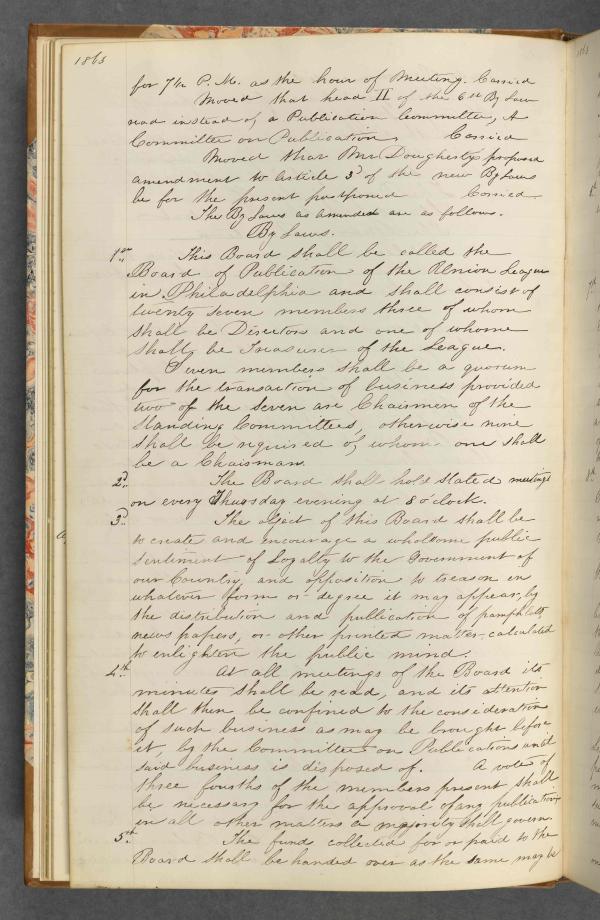 1863
for 7½ P.M. as the hour of Meeting. Carried
Moved that head II of the 6th By Law
read instead of a Publication Committee, A
Committee on Publication, Carried
Moved that Mr Dougherty's proposed
amendment to article 3d of the new By Laws
be for the present postponed Carried
The By Laws as amended are as follows.
By Laws.
1st This Board shall be called the
Board of Publication of the Union League
in Philadelphia and shall consist of
twenty seven members three of whom
shall be Directors and one of whome
shall be Treasurer of the League.
Seven members shall be a quorum
for the transaction of business provided
two of the seven are Chairmen of the
Standing Committees, otherwise nine
shall be required of whom one shall
be a Chairman.
2d The Board shall hold stated meetings
on every Thursday evening at 8 o'clock.
3d The object of this Board shall be
to create and encourage a wholesome public
sentiment of Loyalty to the Government of
our Country, and opposition to treason in
whatever form or degree it may appear, by
the distribution and publication of pamphlets,
news papers, or other printed matter calculated
to enlighten the public mind.
4th At all meetings of the Board its
minutes shall be read, and its attention
shall then be confined to the consideration
of such business as may be brought before
it, by the Committee on Publications until
said business is disposed of. A vote of
three fourths of the members present shall
be necessary for the approval of any publication,
in all other matters a majority shall govern.
5th The funds collected for or paid to the
Board shall be handed over as the same may be